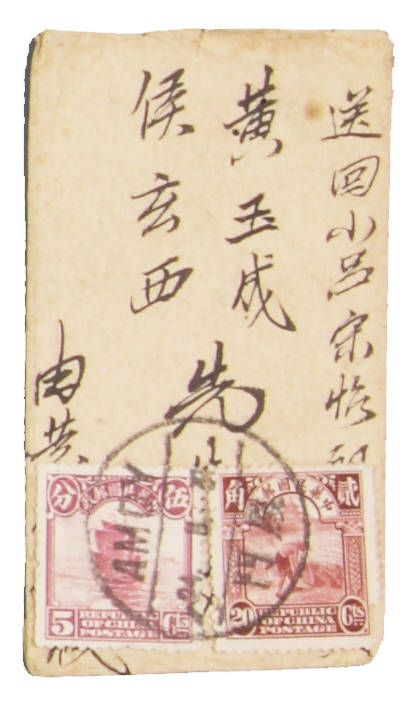 送回小呂宋怡朗
黃玉成
侯玄西
先生
由黃
分 中華民國郵政 伍
5 REPUBLIC OF CHINA POSTAGE Cts
角 中華民國郵政 貳
20 REPUBLIC OF CHINA POSTAGE Cts
AMOY
廈門